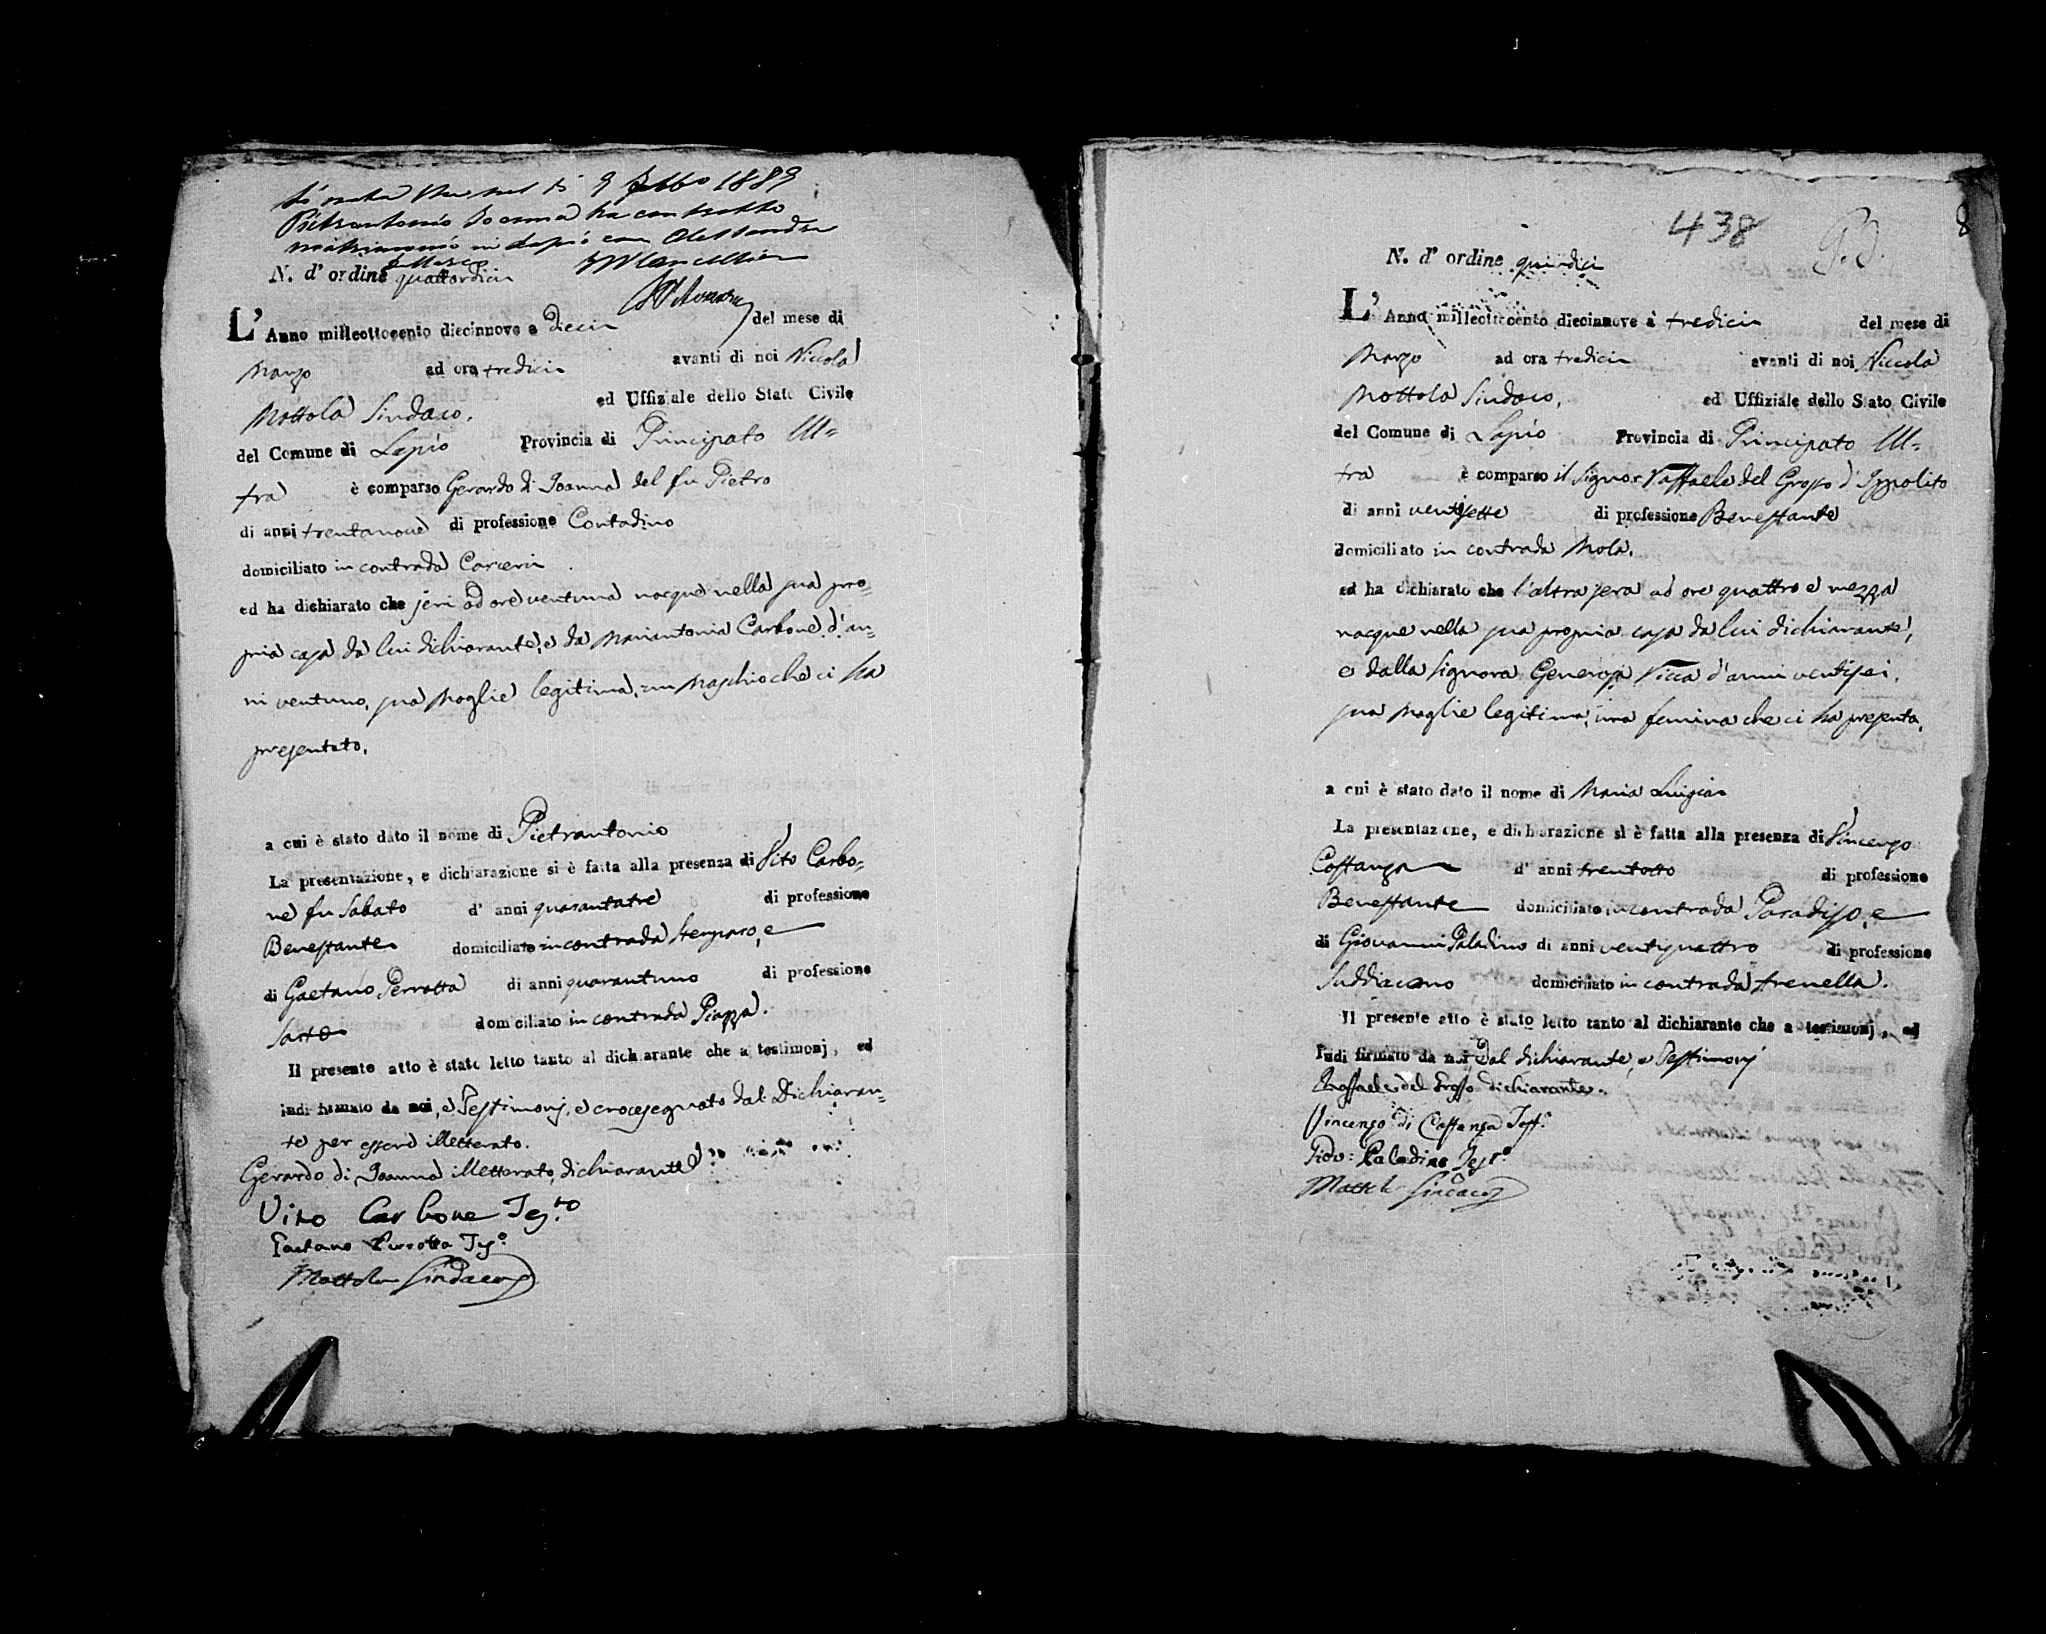 Si nota che nel dì 9 febbo 1889
Pietrantonio Joanna ha contratto
matrimonio in Lapio con Alessandra
N. d' ordine quattordici
L' Anno milleottocento diecinnove a Dieci del mese di
Marzo ad ora tredici avanti di noi Niccola
Mottola Sindaco. ed Uffiziale dello Stato Civile
del Comune di Lapio Provincia di Principato Ul=
tra è comparso Gerardo di Joanna del fu Pietro
di anni trentanove di professione Contadino
domiciliato in contrada Carceri
ed ha dichiarato che jeri ad ore ventuna nacque nella sua pro=
pria casa da lui dichiarante, e da Mariantonia Carbone d'an=
ni ventuno, sua Moglie legittima, un Maschio che ci ha
presentato.
a cui è stato dato il nome di Pietrantonio
La presentazione, e dichiarazione si è fatta alla presenza di Vito Carbo=
ne fu Sabato d' anni quarantatre di professione
Benestante domiciliato in contrada e
di Gaetano Perrotta di anni quarantuno di professione
Sarto domiciliato in contrada Piazza.
Il presente atto è stato letto tanto al dichiarante che a testimonj, ed
indi firmato da noi, e Testimonj, e crocesegnato dal Dichiaran=
te per essere illetterato.
Gerardo di Joanna illetterato, dichiarante
Vito Carbone Testo
Gaetano Perrotta Teso
Mottola Sindaco
438
8
N. d' ordine quindici
L' Anno milleottocento diecinnove à tredici del mese di
Marzo ad ora tredici avanti di noi Niccola
Mottola Sindaco, ed Uffiziale dello Stato Civile
del Comune di Lapio Provincia di Principato Ul=
tra è comparso il Signor Raffaele del Grosso d'Ippolito
di anni ventisette di professione Benestante
domiciliato in contrada Mola.
ed ha dichiarato che l'altra sera ad ore quattro e mezza
nacque nella sua propria casa da lui dichiarante,
e dalla Signora Generosa Vicca d'anni ventisei,
sua Moglie legittima, una femina che ci ha presenta.
a cui è stato dato il nome di Maria Luigia
La presentazione, e dichiarazione si è fatta alla presenza di Vincenzo
Costanza d' anni trentotto di professione
Benestante domiciliato in contrada Paradiso, e
di Giovanni Paladino di anni ventiquattro di professione
Suddiacono domiciliato in contrada Frenella.
Il presente atto è stato letto tanto al dichiarante che a testimonj, ed
indi firmato da noi, dal dichiarante, e Testimonj
Raffaele del Grosso dichiarante.
Vincenzo di Costanza Testo
Giov: Paladino Testo
Mottola Sindaco